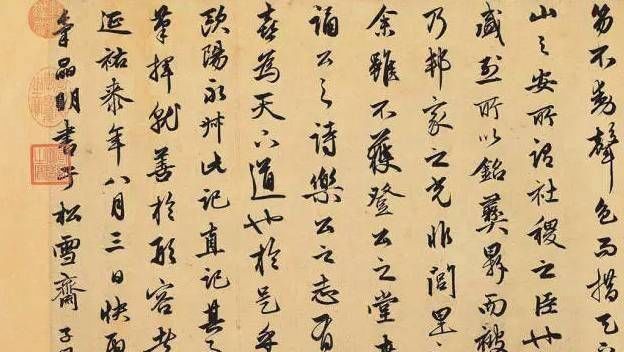 笏不動聲色而措天
山之安所謂社稷之臣也
盛烈所以銘彝鼎而被
乃邦家之光非閭里
余雖不獲登公之堂
誦公之詩樂公之志有
喜為天下道也於是乎
歐陽永叔此記直記其
筆揮就善於形容者
延祐泰年八月三日快雨
晶明書于松雪齋 子